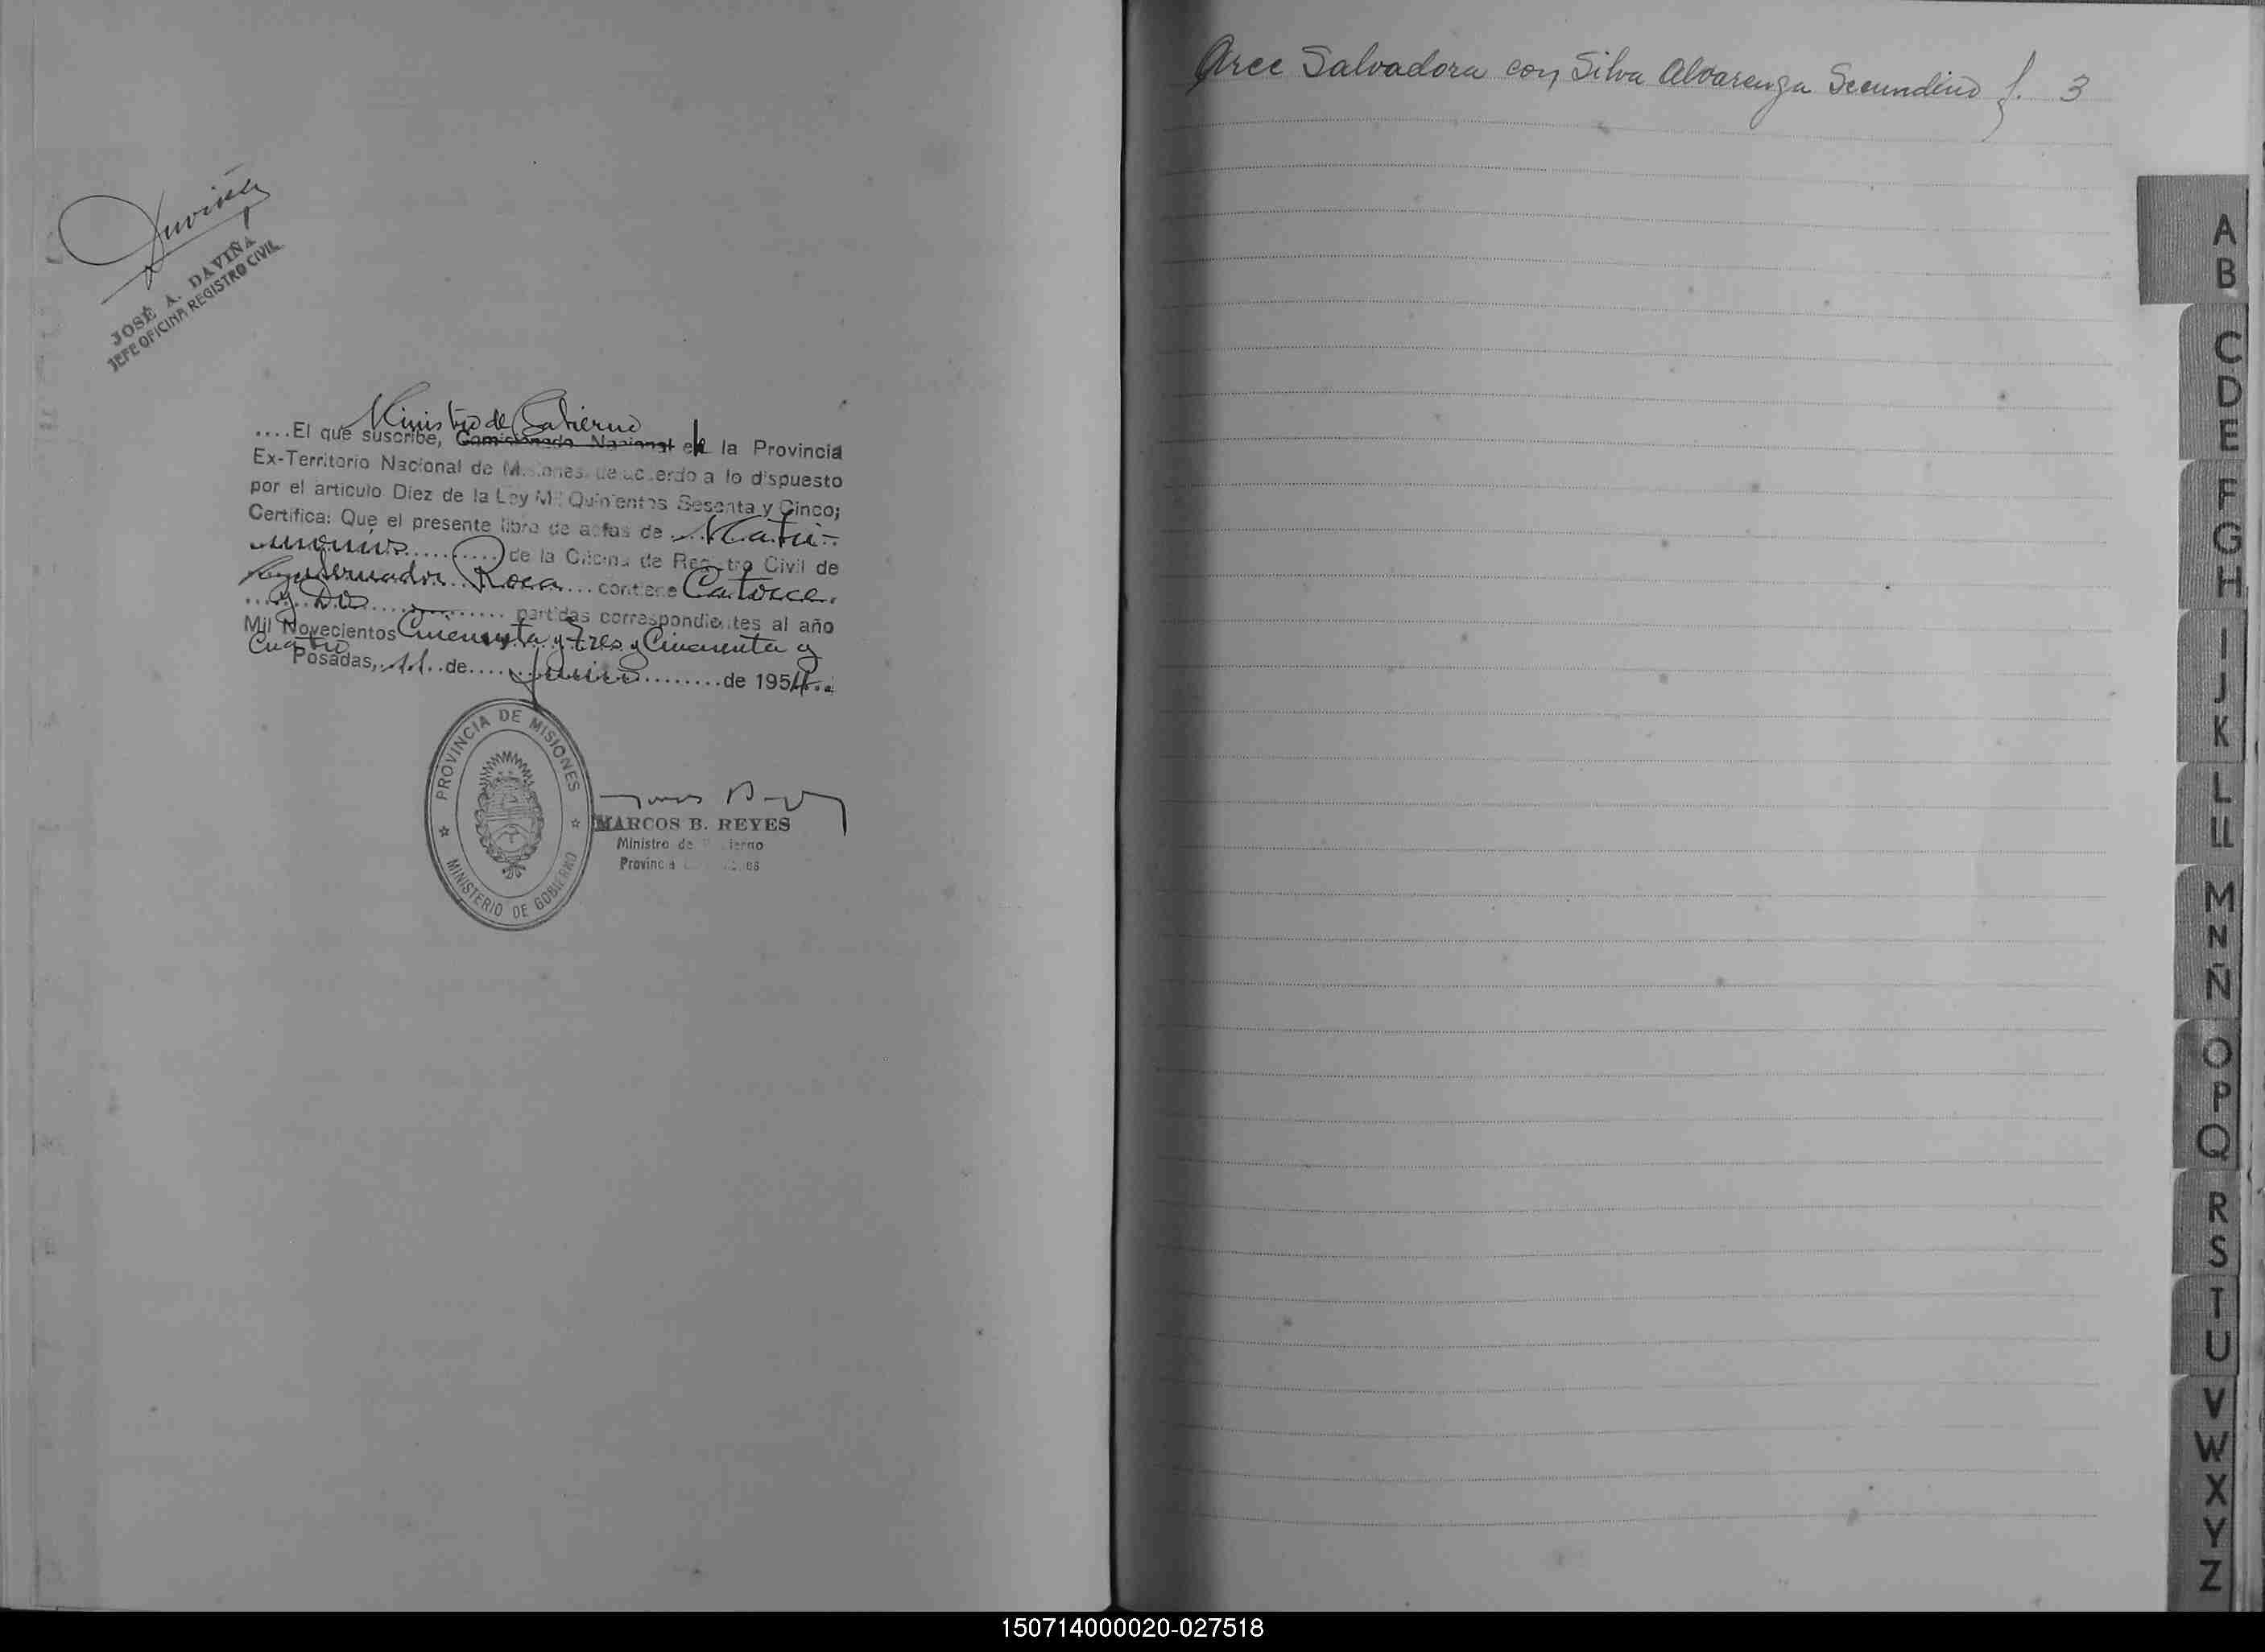 JOSÉ A. DAVIÑA
JEFE OFICINA REGISTRO CIVIL
Ministro de Gobierno
....El que suscribe, Comisionado Nacional en la Provincia
Ex-Territorio Nacional de Misiones, de acuerdo a lo dispuesto
por el artículo Diez de la Ley Mil Quinientos Sesenta y Cinco;
Certifica: Que el presente libro de actas de Matri-
monios de la Oficina de Registro Civil de
Gobernador Roca contiene Catorce
y Dos partidas correspondientes al año
Mil Novecientos Cincuenta y Tres y Cincuenta y
Cuatro
Posadas, 11 de Junio de 1954
PROVINCIA DE MISIONES
MINISTERIO DE GOBIERNO
MARCOS B. REYES
Ministro de Gobierno
Provincia de Misiones
Arce Salvadora con Silva Alvarenga Secundino f. 3
A
B
C
D
E
F
G
H
I
J
K
L
LL
M
N
Ñ
O
P
Q
R
S
T
U
V
W
X
Y
Z
150714000020-027518